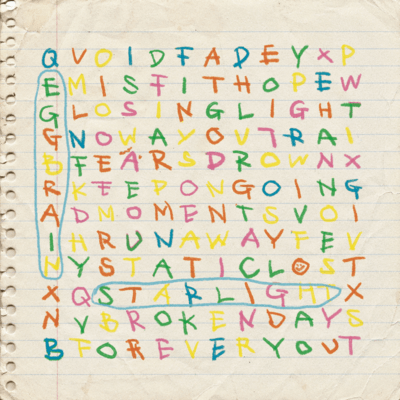 Q V O I D F A D E Y X P
E M I S F I T H O P E W
G L O S I N G L I G H T
G N O W A Y O U T R A I
B F E A R S D R O W N X
R K E E P O N G O I N G
A D M O M E N T S V O I
I H R U N A W A Y F E V
N Y S T A T I C L O S T
X Q S T A R L I G H T X
N V B R O K E N D A Y S
B F O R E V E R Y O U T